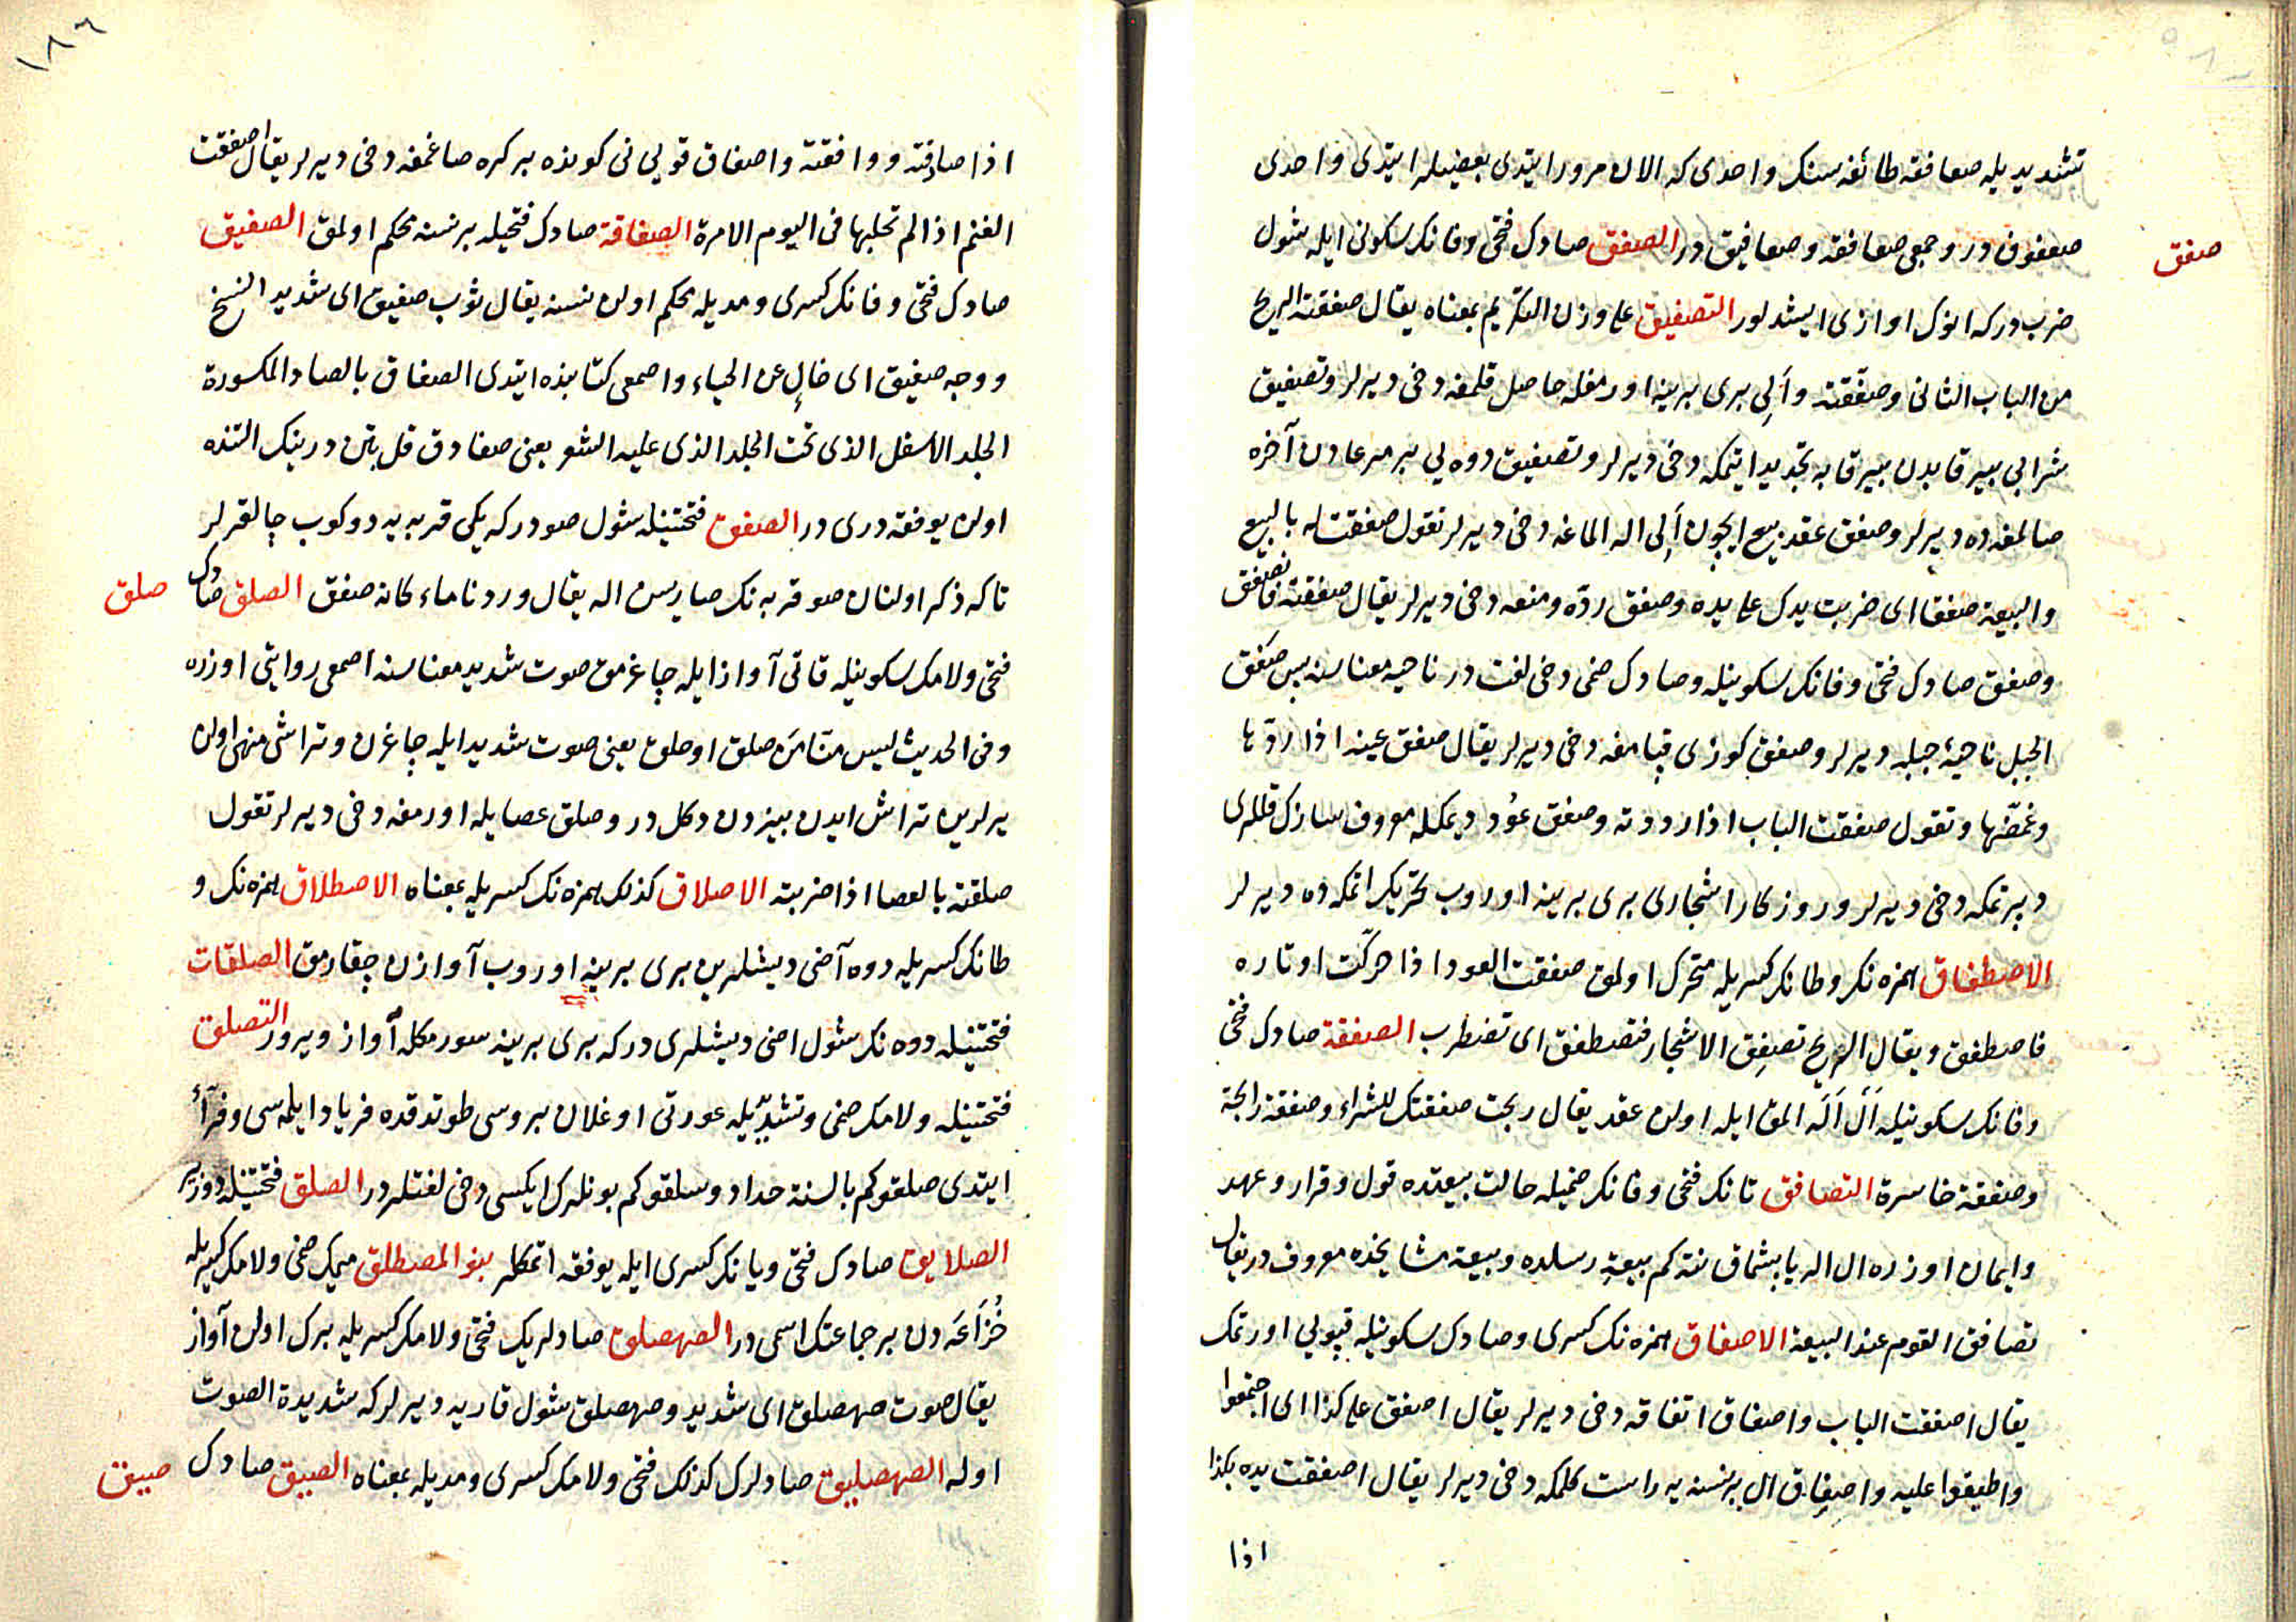 تشديد يله صعافقه طائفه سنك واحدى كه الان مرور ايتدى بعضيلر ايتدى واحدى
صعفوق در وجمعى صعافقه وصعافيق در الصفق صادك فتحى وفانك سكونى ايله شول
صفق
ضرب در كه انوك اوازى ايشدلور التصفيق على وزن التكريم بمعناه يقال صفقته الريح
من الباب الثانى وصفّقته وألى برى برينه اورمغله حاصل قلمغه دخى ديرلر وتصفيق
شرابى بير قابدن بير قابه تجديد ايتمكه دخى ديرلر وتصفيق دوه يى بر مرعادن آخره
صالمغه ده ديرلر وصفق عقد بيع ايچون ألى اله الماغه دخى ديرلر تقول صفقت له بالبيع
والبيعة صفقا اى ضربت يدك على يده وصفق ردّه ومنعه دخى ديرلر يقال صفقته فانصفق
وصفق صادك فتحى وفانك سكونيله وصادك ضمى دخى لغت در ناحيه معناسنه پس صفق
الجبل ناحيۀ جبله ديرلر وصفق كوزى قپامغه دخى ديرلر يقال صفق عينه اذا ردّها
وغمّضها وتقول صفقت الباب اذا رددته وصفق عُود ديمكله معروف سازك قللرى
دپرتمكه دخى ديرلر وروزكار اشجارى برى برينه اوروب تحريك اتمكه ده ديرلر
الاصطفاق همزه نك وطانك كسريله متحرك اولمق صفقت العود اذا حركت اوتاره
فاصطفق ويقال الريح تصفِق الاشجار فتصطفق اى تضطرب الصفقة صادك فتحى
وفانك سكونيله اَل اَله المق ايله اولن عقد يقال ربحت صفقتك للشراء وصفقة رابحة
وصفقة خاسرة التصافق تانك فتحى وفانك ضميله حالت بيعتده قول وقرار وعهد
وايمان اوزره ال اله يابشماق نته كم بيعة رسلده وبيعة مشايخده معروف در يقال
تصافق القوم عند البيعة الاصفاق همزه نك كسرى وصادك سكونيله قپويى اورتمك
يقال اصفقت الباب واصفاق اتفاقه دخى ديرلر يقال اصفق على كذا اى اجتمعوا
واطبقوا عليه واصفاق ال بر نسنه يه راست كلمكه دخى ديرلر يقال اصفقت يده بكذا
اذا
١٨٦
اذا صادفته ووافقته واصفاق قويى نى كونده بر كره صاغمغه دخى ديرلر يقال اصفقت
الغنم اذا لم تحلبها فى اليوم الا مرة الصفاقة صادك فتحيله بر نسنه محكم اولمق الصفيق
صادك فتحى وفانك كسرى ومديله محكم اولن نسنه يقال ثوب صفيق اى شديد النسج
ووجه صفيق اى خالٍ عن الحياء واصمعى كتابنده ايتدى الصفاق بالصاد المكسورة
الجلد الاسفل الذى تحت الجلد الذى عليه الشعر يعنى صفادق قل بتن درينك التنده
اولن يوفقه درى در الصفق فتحتينله شول صودر كه يكى قربه يه دوكوب چالقرلر
تاكه ذكر اولنان صو قربه نك صاريسن اله يقال وردنا ماء كانه صفق الصلق صادك
صلق
فتحى ولامك سكونيله قاتى آواز ايله چاغرمق صوت شديد معناسنه اصمعى روايتى اوزره
وفى الحديث ليس منّا مَن صلق او حلق يعنى صوت شديد ايله چاغرن وتراشى منهى اولن
يرلرين تراش ايدن بيزدن دكل در وصلق عصايله اورمغه دخى ديرلر تقول
صلقته بالعصا اذا ضربته الاصلاق كذلك همزه نك كسريله بمعناه الاصطلاق همزه نك و
طانك كسريله دوه آضى ديشلرين برى برينه اوروب آوازن چقارمق الصلقات
فتحتينله دوه نك شول اضى ديشلرى در كه برى برينه سورمكله آواز ويرور التصلق
فتحتينله ولامك ضمى وتشديّله عورتى اوغلان بروسى طوتدقده فرياد ايلمسى وفرآء
ايتدى صلقوكم بالسنة حداد وسلقوكم بونلرك ايكسى دخى لغتلردر الصلق فتحتينله دوز ير
الصلايق صادك فتحى ويانك كسرى ايله يوفقه اتمكلر بنو المصطلق ميمك ضمى ولامك كسريله
خُزاعَه دن بر جماعتك اسمى در الصهصلق صادلريك فتحى ولامك كسريله برك اولن آواز
يقال صوت صهصلق اى شديد وصهصلق شول قاريه ديرلر كه شديدة الصوت
اوله الصهصليق صادلرك كذلك فتحى ولامك كسرى ومديله بمعناه الصيق صادك
صيق